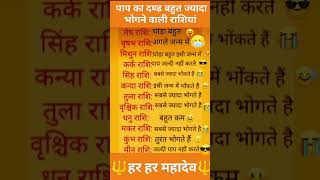 पाप का दण्ड बहुत ज्यादा
भोगने वाली राशियां
मेष राशि: थोड़ा बहुत
वृषभ राशि: अगले जन्म में
मिथुन राशि: थोड़ा बहुत इसी जन्म में
कर्क राशि: पाप जल्दी नहीं करते
सिंह राशि: सबसे ज्यादा भोंकते हैं
कन्या राशि: इसी जन्म में भोंकते हैं
तुला राशि: सबसे ज्यादा भोगते है
वृश्चिक राशि: सबसे ज्यादा भोगते है
धनु राशि: बहुत कम
मकर राशि: सबसे ज्यादा भोगते हैं
कुंभ राशि: तुरंत भोगते हैं
मीन राशि: जल्दी पाप नहीं करते
हर हर महादेव